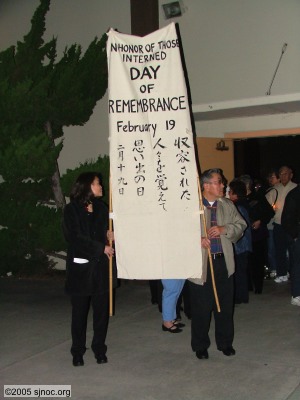 IN HONOR OF THOSE
INTERNED
DAY
OF
REMEMBRANCE
February 19
収容された
人々を覚えて
思い出の日
二月十九日
©2005 sjnoc.org